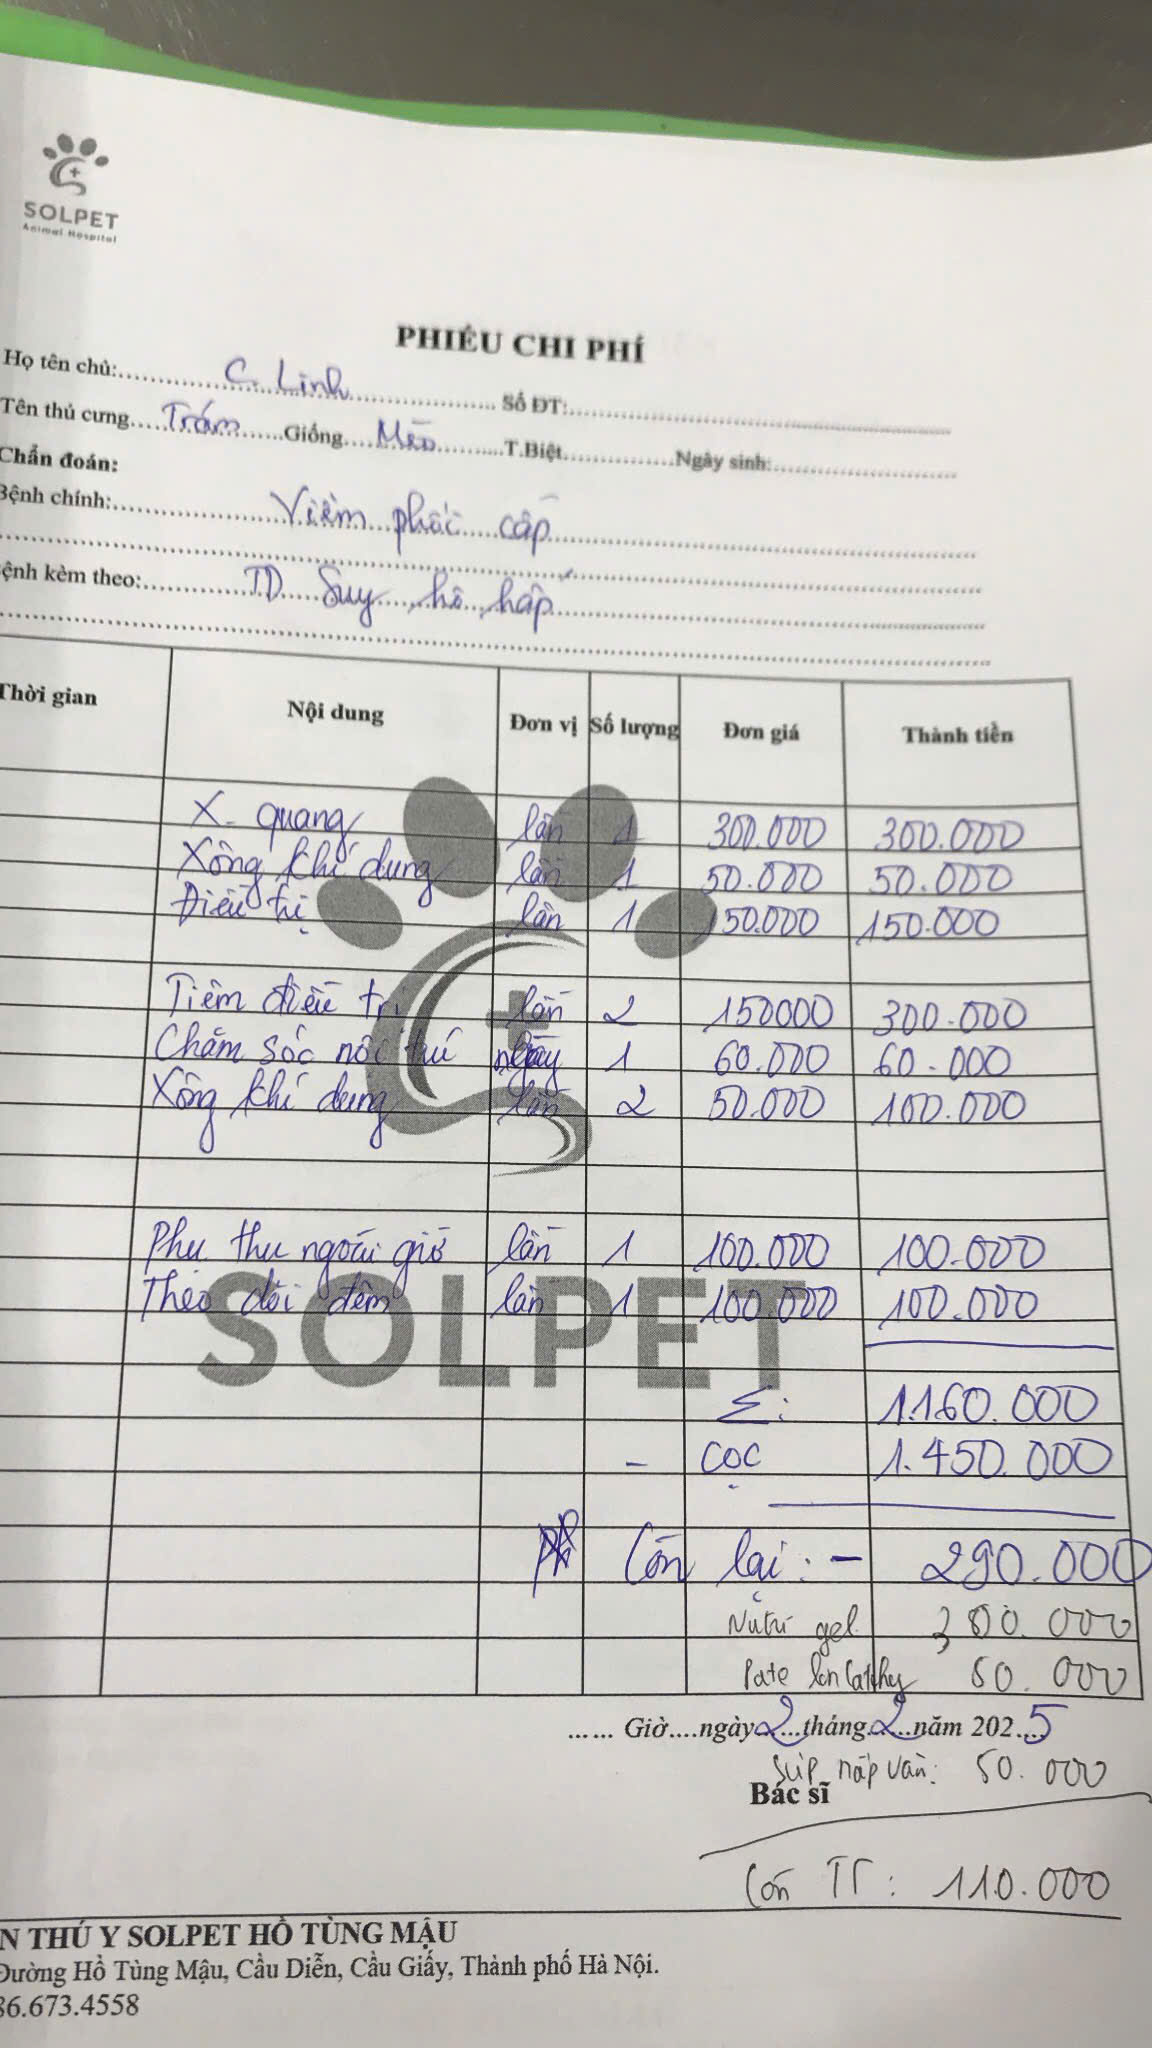 SOLPET
Animal Hospital
PHIẾU CHI PHÍ
Họ tên chủ: C. Linh Số ĐT:
Tên thú cưng Trắm Giống Mèo T.Biệt Ngày sinh:
Chẩn đoán:
Bệnh chính: Viêm phổi cấp
ệnh kèm theo: TD Suy hô hấp
Thời gian Nội dung Đơn vị Số lượng Đơn giá Thành tiền
X. quang lần 1 300.000 300.000
Xông khí dung lần 1 50.000 50.000
Điều trị lần 1 150.000 150.000
Tiêm điều trị lần 2 150000 300.000
Chăm sóc nội trú ngày 1 60.000 60.000
Xông khí dung lần 2 50.000 100.000
Phụ thu ngoài giờ lần 1 100.000 100.000
Theo dõi đêm lần 1 100.000 100.000
SOLPET
Σ: 1.160.000
- CỌC 1.450.000
Còn lại: - 290.000
Nutri gel 300.000
Pate lon 50.000
...... Giờ....ngày 2 tháng 2 năm 2025
Súp nắp vàn: 50.000
Bác sĩ
Còn TT: 110.000
N THÚ Y SOLPET HỒ TÙNG MẬU
Đường Hồ Tùng Mậu, Cầu Diễn, Cầu Giấy, Thành phố Hà Nội.
86.673.4558